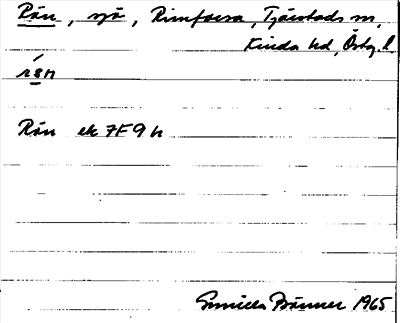 Rön, sjö, Rimforsa, Tjärstads sn,
Kinda hd, Östg. l.
Rön ek 7F 9h
Gunilla Bränner 1965